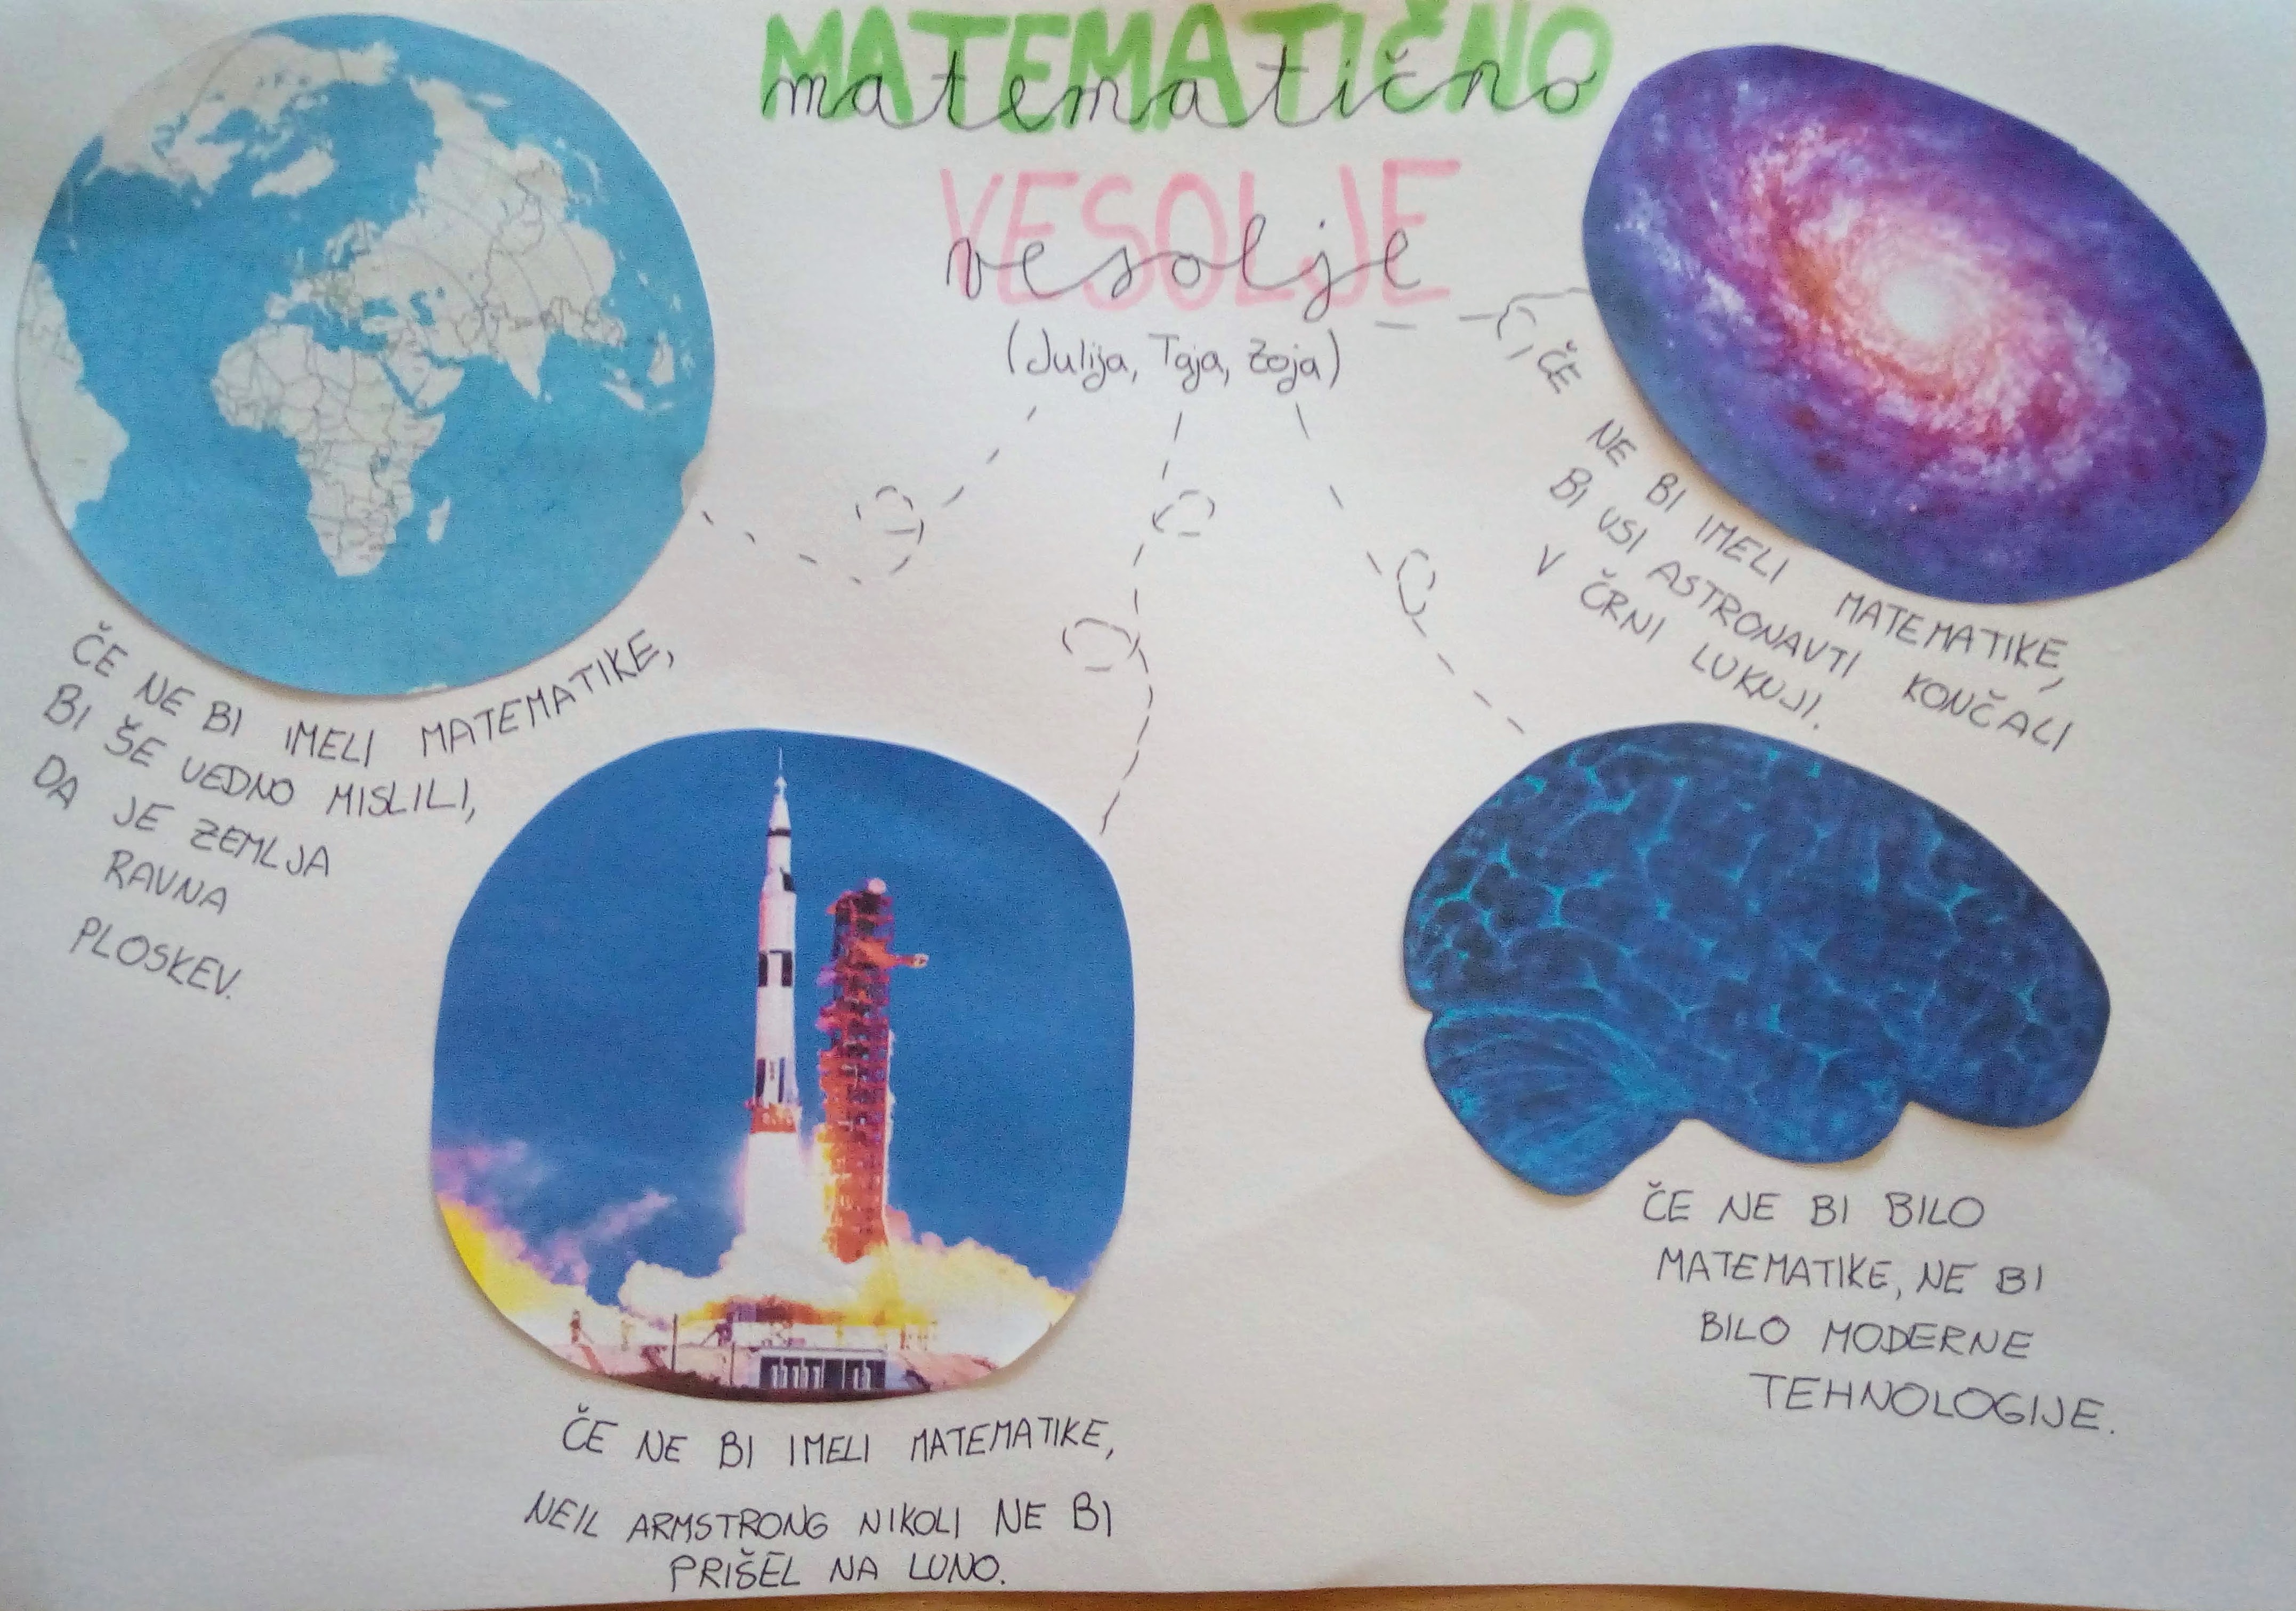 MATEMATIČNO
matematično
VESOLJE
vesolje
(Julija, Taja, Zoja)
ČE NE BI IMELI MATEMATIKE,
BI ŠE VEDNO MISLILI,
DA JE ZEMLJA
RAVNA
PLOSKEV.
ČE NE BI IMELI MATEMATIKE,
BI VSI ASTRONAVTI KONČALI
V ČRNI LUKNJI.
ČE NE BI IMELI MATEMATIKE,
NEIL ARMSTRONG NIKOLI NE BI
PRIŠEL NA LUNO.
ČE NE BI BILO
MATEMATIKE, NE BI
BILO MODERNE
TEHNOLOGIJE.